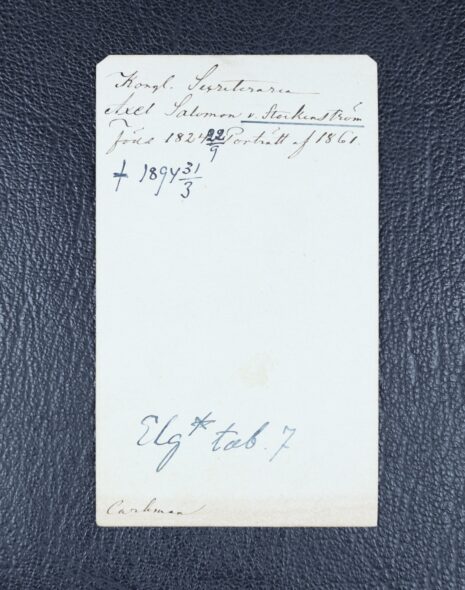 Kongl. Secreteraren
Axel Salomon v. Stockenström
född 1824 22/9 Porträtt af 1861.
† 1894 31/3
Elg* tab. 7
Carlman